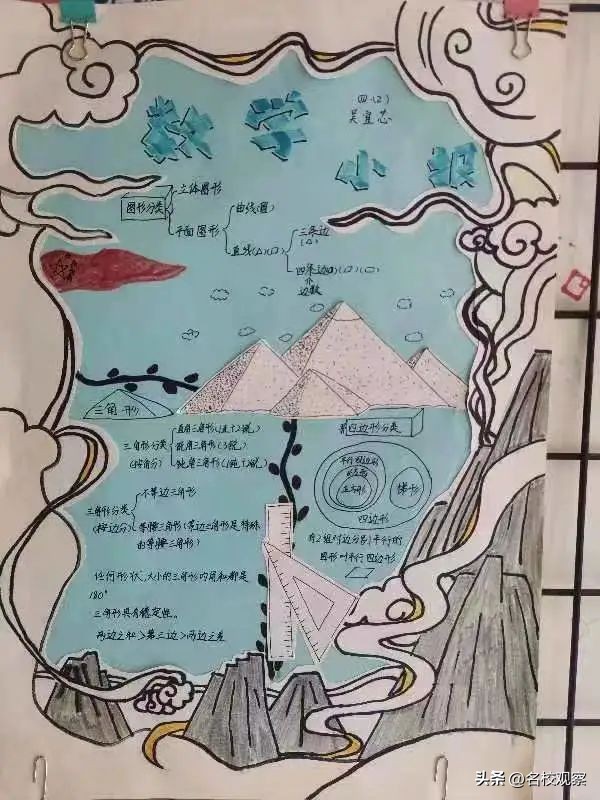 数学
小报
四(2)
吴宜芯
图形分类
立体图形
平面图形
曲线(圆)
直线(△)(□)
三条边
(△)
四条边
边数
三角形
三角形分类
(按角分)
直角三角形(1直+2锐)
锐角三角形(3锐)
钝角三角形(1钝+2锐)
三角形分类
(按边分)
不等边三角形
等腰三角形(等边三角形是特殊
的等腰三角形)
任何形状、大小的三角形内角和都是
180°
三角形具有稳定性。
两边之和>第三边>两边之差
四边形分类
平行四边形
正方形
梯形
四边形
有2组对边分别平行的
图形叫平行四边形
头条 @名校观察